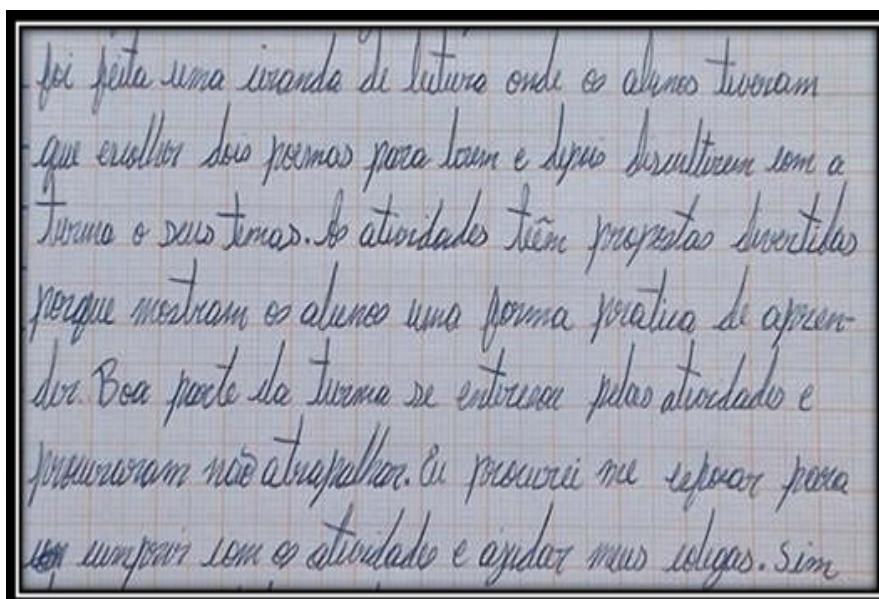 foi feita uma ciranda de leitura onde os alunos tiveram
que escolher dois poemas para lerem e depois discultirem com a
turma o seus temas. As atividades tiêm propostas divertidas
porque mostram os alunos uma forma prática de apren-
der. Boa parte da turma se enteresou pelas atividades e
procuraram não atrapalhar. Eu procurei me esforar para
cumprir com as atividades e ajudar meus colegas. Sim